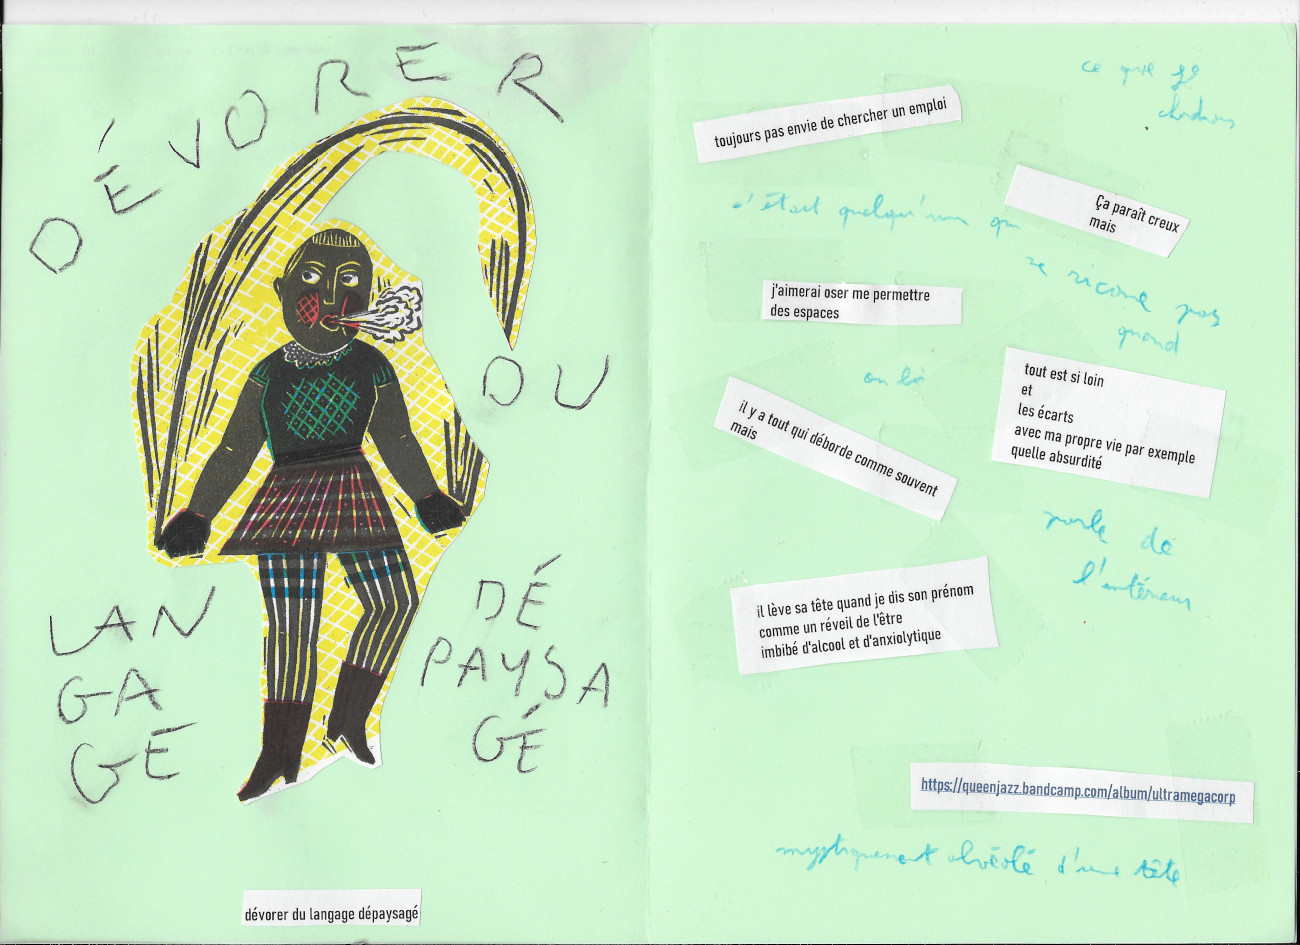 DÉVORER
DU
LAN
GA
GE
DÉ
PAYSA
GÉ
dévorer du langage dépaysagé
ce que je
toujours pas envie de chercher un emploi
c'était quelqu'un qui
Ça paraît creux
mais
ne ricane pas
quand
j'aimerai oser me permettre
des espaces
on lui
tout est si loin
et
les écarts
avec ma propre vie par exemple
quelle absurdité
il y a tout qui déborde comme souvent
mais
parle de
l'intérieur
il lève sa tête quand je dis son prénom
comme un réveil de l'être
imbibé d'alcool et d'anxiolytique
https://queenjazz.bandcamp.com/album/ultramegacorp
mystiquement alvéolé d'une tête